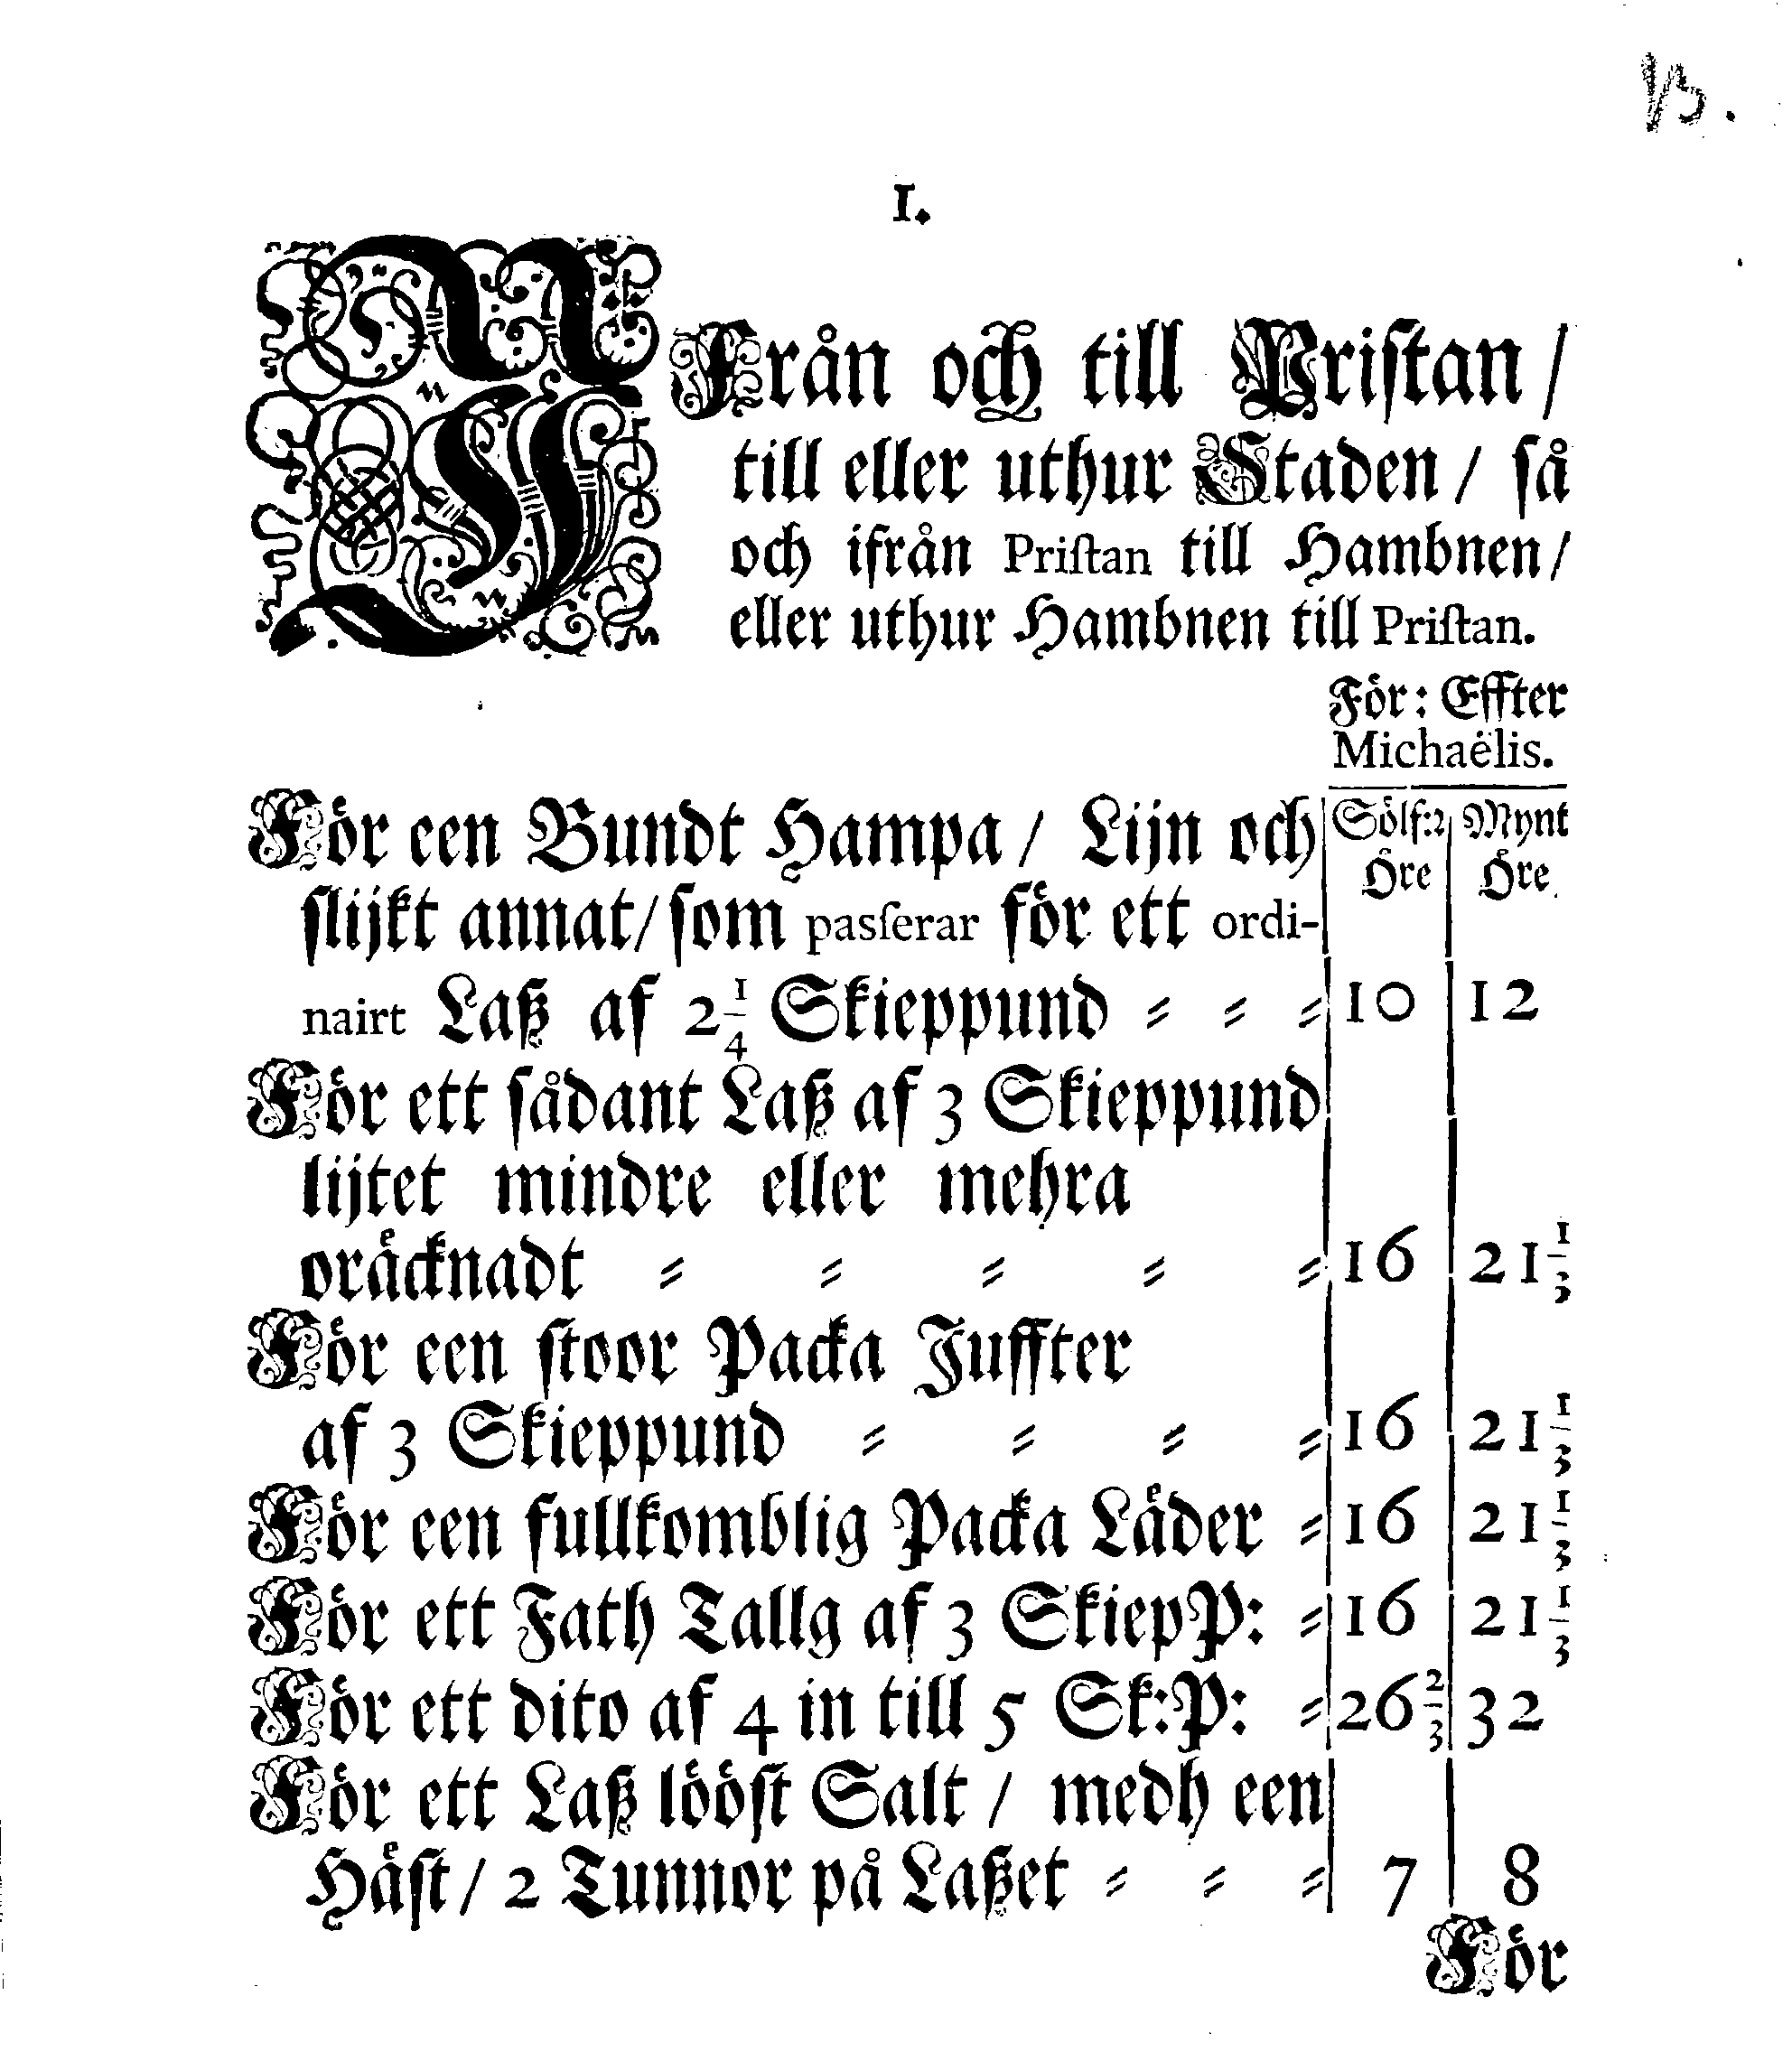 13.
1.
IFrån och till Pristan /
till eller uthur Staden / så
och ifrån Pristan till Hambnen /
eller uthur Hambnen till Pristan.
För: Effter
Michaëlis.
För een Bundt Hampa / Lijn och Sölf:r Mynt
Öre Öre
slijkt annat / som passerar för ett ordi-
nairt Laß af 2 1/4 Skieppund = = = 10 12
För ett sådant Laß af 3 Skieppund
lijtet mindre eller mehra
oräcknadt = = = = = 16 21 1/3
För een stoor Packa Juffter
af 3 Skieppund = = = = 16 21 1/3
För een fullkomblig Packa Läder = 16 21 1/3
För ett Fath Tallg af 3 SkiepP: = 16 21 1/3
För ett dito af 4 in till 5 Sk:P: = 26 2/3 32
För ett Laß lööst Salt / medh een
Häst / 2 Tunnor på Laßet = = = 7 8
För